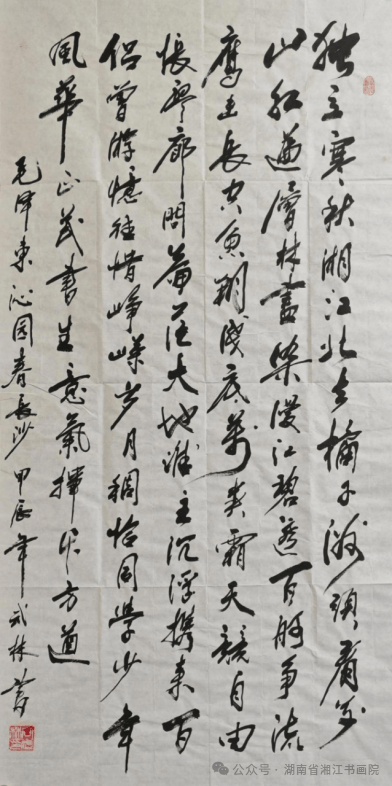 独立寒秋湘江北去橘子洲頭看万
山红遍層林盡染漫江碧透百舸争流
鹰击長空魚翔浅底萬类霜天競自由
悵寥廓問蒼茫大地誰主沉浮携来百
侣曾游憶往惜峥嵘岁月稠恰同學少年
風華正茂書生意氣揮斥方遒
毛泽東沁园春長沙 甲辰年 林書
公众号 · 湖南省湘江书画院